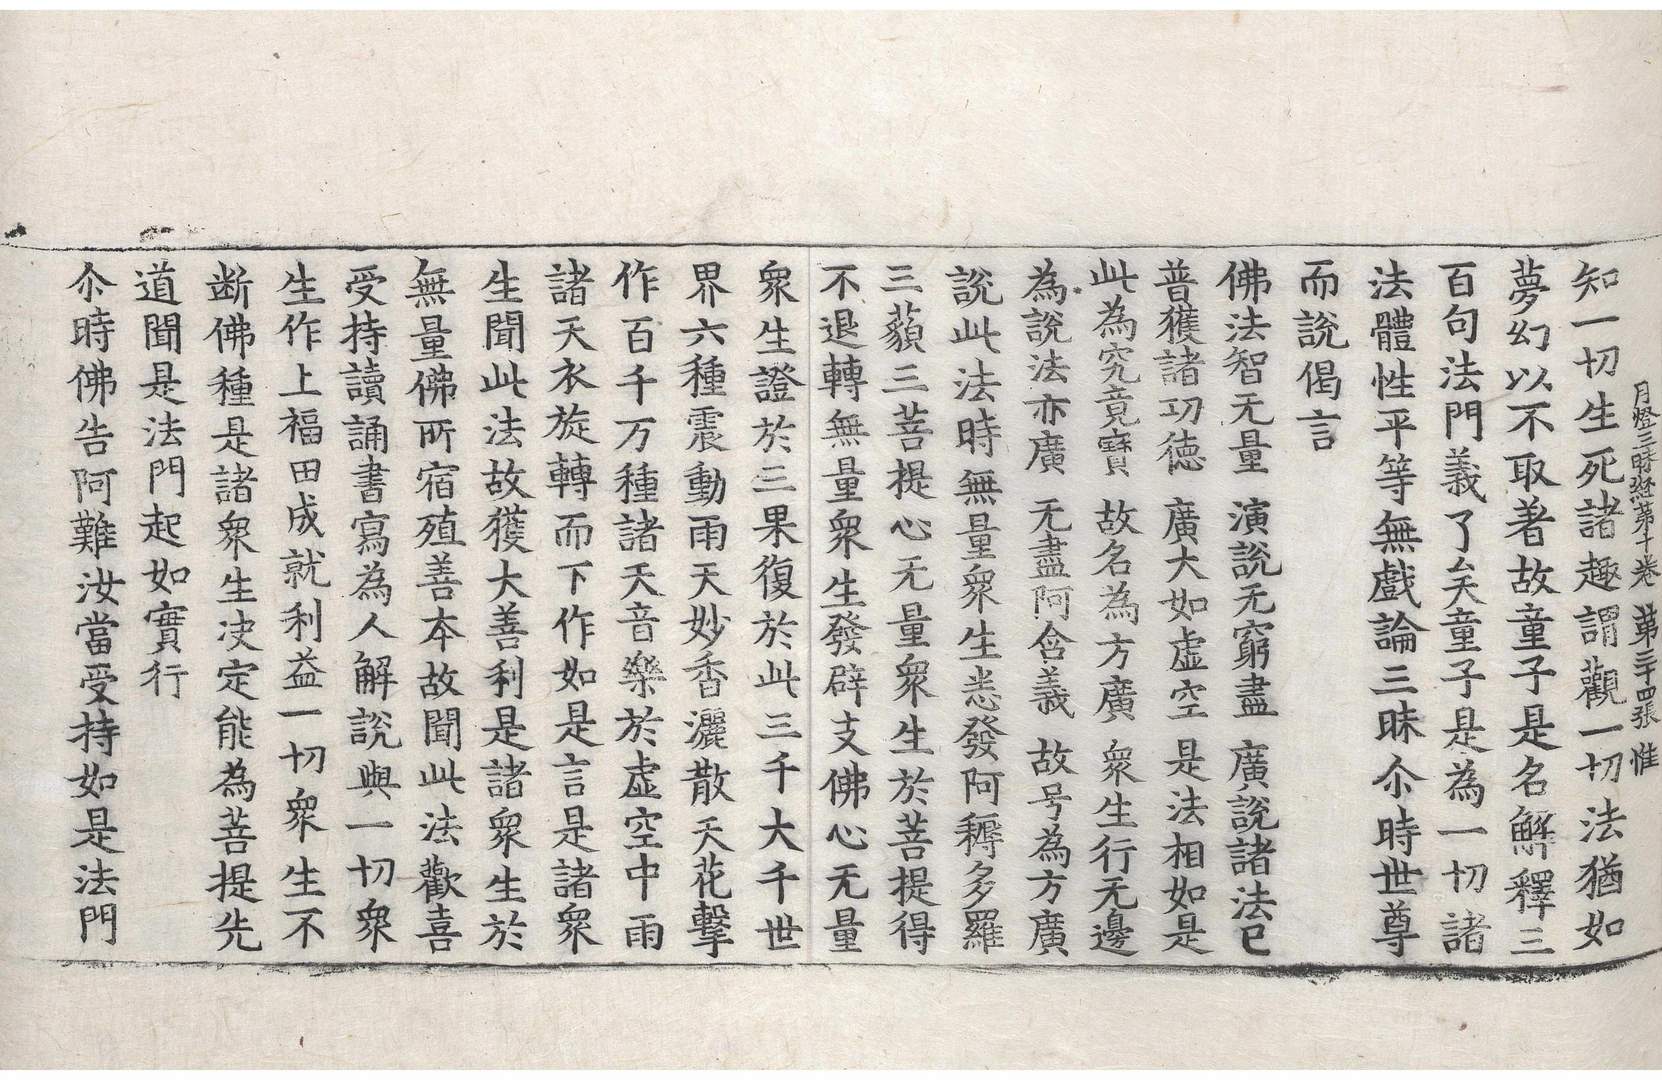 月燈三昧経第十卷 第三十四張 惟
知一切生死諸趣謂觀一切法猶如
夢幻以不取著故童子是名解釋三
百句法門義了矣童子是為一切諸
法體性平等無戲論三昧尒時世尊
而說偈言
佛法智无量 演說无窮盡 廣說諸法已
普獲諸功德 廣大如虛空 是法相如是
此為究竟寶 故名為方廣 衆生行无邊
為說法亦廣 无盡阿含義 故号為方廣
說此法時無量衆生悉發阿耨多羅
三藐三菩提心无量衆生於菩提得
不退轉無量衆生發辟支佛心无量
衆生證於三果復於此三千大千世
界六種震動雨天妙香灑散天花擊
作百千万種諸天音樂於虛空中雨
諸天衣旋轉而下作如是言是諸衆
生聞此法故獲大善利是諸衆生於
無量佛所宿殖善本故聞此法歡喜
受持讀誦書寫為人解說與一切衆
生作上福田成就利益一切衆生不
断佛種是諸衆生决定能為菩提先
道聞是法門起如實行
尒時佛告阿難汝當受持如是法門